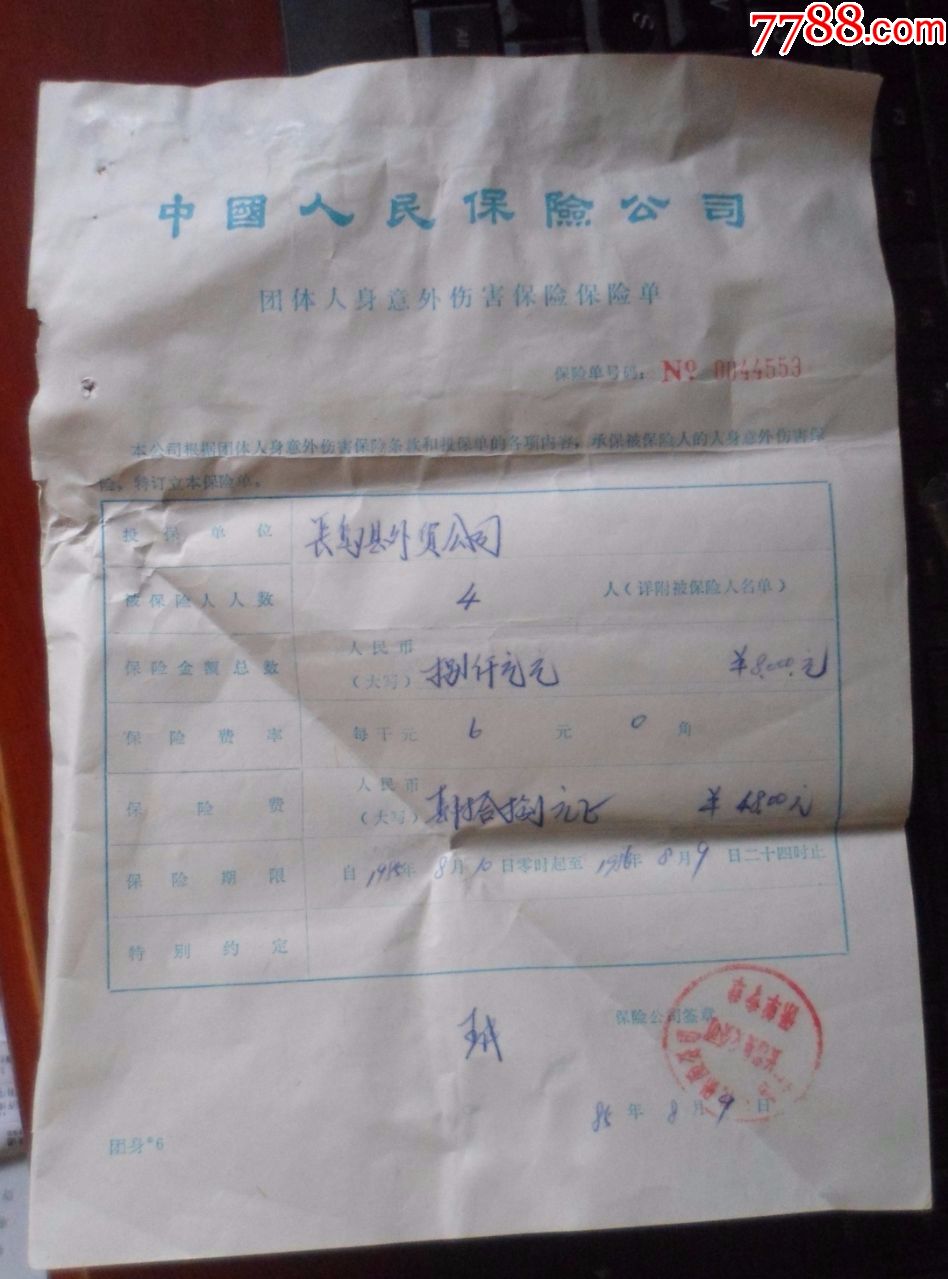 7788.com
中國人民保險公司
团体人身意外伤害保险保险单
保险单号码： № 0044553
本公司根据团体人身意外伤害保险条款和投保单的各项内容，承保被保险人的人身意外伤害保
险，特订立本保险单。
投保单位 长岛县外贸公司
被保险人人数 4 人（详附被保险人名单）
保险金额总数 人民币（大写） 捌仟元 ￥8,000.元
保险费率 每千元 6 元 0 角
保险费 人民币（大写） 肆拾捌元 ￥48.00元
保险期限 自1985年8月10日零时起至1986年8月9日二十四时止
特别约定
保险公司签章
85年8月9日
团身*6